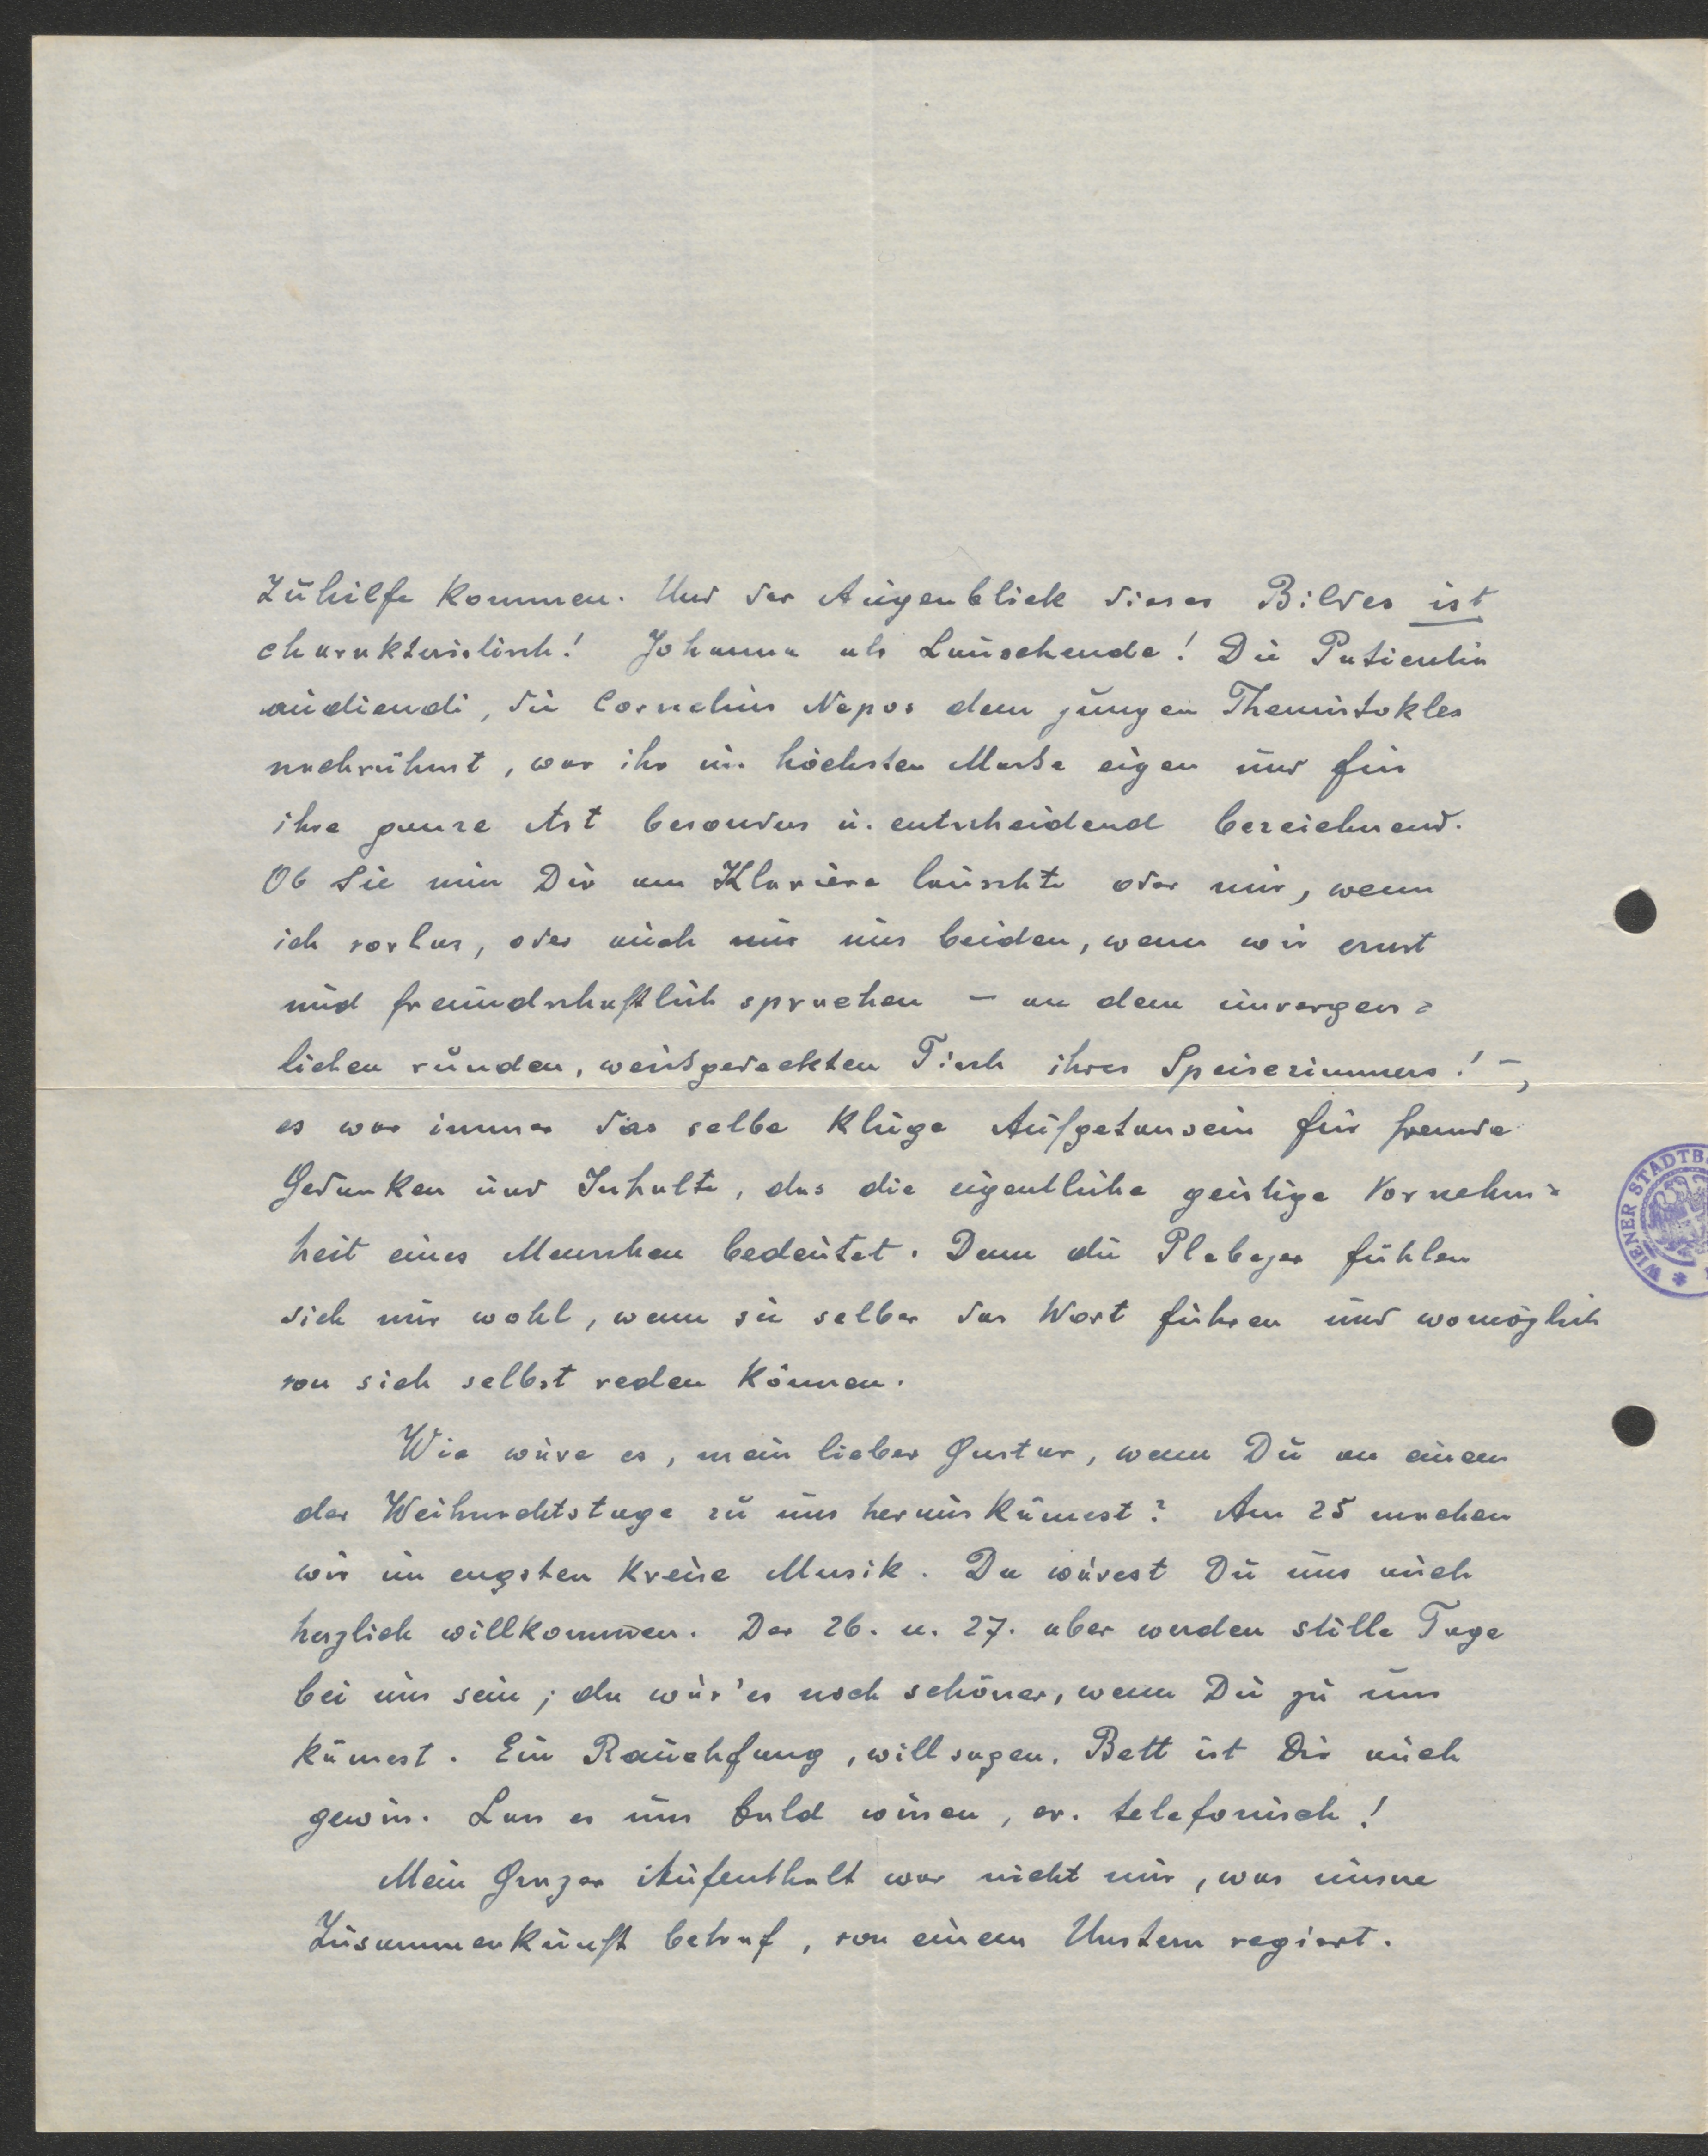 Zuhilfe kommen. Und der Augenblick dieses Bildes ist
charakteristisch! Johanna als Lauschende! Die Patientia
audiendi, die Cornelius Nepos dem jungen Themistokles
nachrühmt, war ihr im höchsten Masse eigen und für
ihre ganze Art besonders u. entscheidend bezeichnend.
Ob Sie nun Dir am Klaviere lauschte oder mir, wenn
ich vorlas, oder auch nur uns beiden, wenn wir ernst
und freundschaftlich sprachen – an dem unverges=
lichen runden, weissgedeckten Tisch ihres Speisezimmers! –,
es war immer das selbe kluge Aufgetansein für fremde
Gedanken und Inhalte, das die eigentliche geistige Vornehm=
heit eines Menschen bedeutet. Denn die Plebejer fühlen
sich nur wohl, wenn sie selber das Wort führen und womöglich
von sich selbst reden können.
Wie wäre es, mein lieber Gustav, wenn Du an einem
der Weihnachtstage zu uns heraus kämest? Am 25 machen
wir im engsten Kreise Musik. Da wärest Du uns auch
herzlich willkommen. Der 26. u. 27. aber werden stille Tage
bei uns sein; da wär's noch schöner, wenn Du zu uns
kämest. Ein Rauchfang, will sagen, Bett ist Dir auch
gewiss. Lass es uns bald wissen, ev. telefonisch!
Mein Grazer Aufenthalt war nicht nur, was unsere
Zusammenkunft betraf, von einem Unstern regiert.
WIENER STADTB